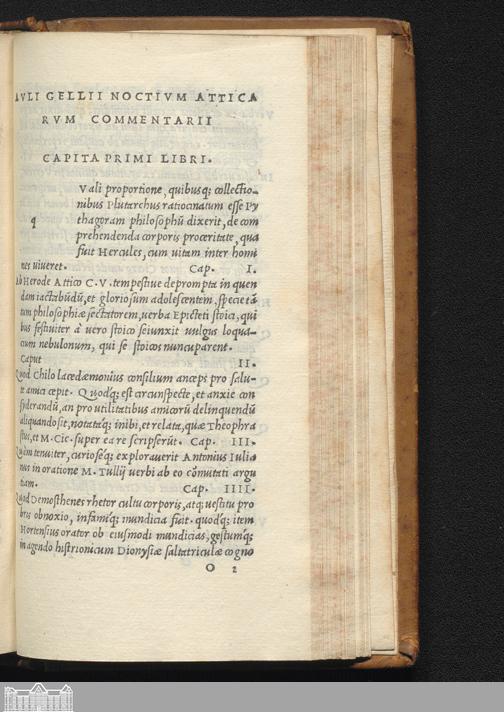 AVLI GELLII NOCTIVM ATTICA
RVM COMMENTARII
CAPITA PRIMI LIBRI.
q Vali proportione, quibusq; collectio-
nibus Plutarchus ratiocinatum esse Py
thagoram philosophũ dixerit, de com
prehendenda corporis proceritate, qua
fuit Hercules, cum uitam inter homi
nes uiueret. Cap. I.
Ab Herode Attico C. V. tempestiue deprompta in quen
dam iactabũdũ, et gloriosum adolescentem, specie tã
tum philosophiæ sectatorem, uerba Epicteti stoici, qui
bus festiuiter à uero stoico seiunxit uulgus loqua-
cium nebulonum, qui se stoicos nuncuparent.
Caput II.
Quod Chilo lacedæmonius consilium anceps pro salu-
te amici cepit. Quodq; est circunspecte, et anxie con
syderandũ, an pro utilitatibus amicorũ delinquendũ
aliquando sit, notataq; inibi, et relata, quæ Theophra
stus, et M. Cic. super ea re scripserũt. Cap. III.
Quàm tenuiter, curioseq; explorauerit Antonius Iulia
nus in oratione M. Tullij uerbi ab eo cõmutati argu
tiam. Cap. IIII.
Quod Demosthenes rhetor cultu corporis, atq; uestitu pro
bris obnoxio, infamiq; mundicia fuit. quodq; item
Hortensius orator ob eiusmodi mundicias, gestumq;
in agendo histrionicum Dionysiæ saltatriculæ cogno
O 2